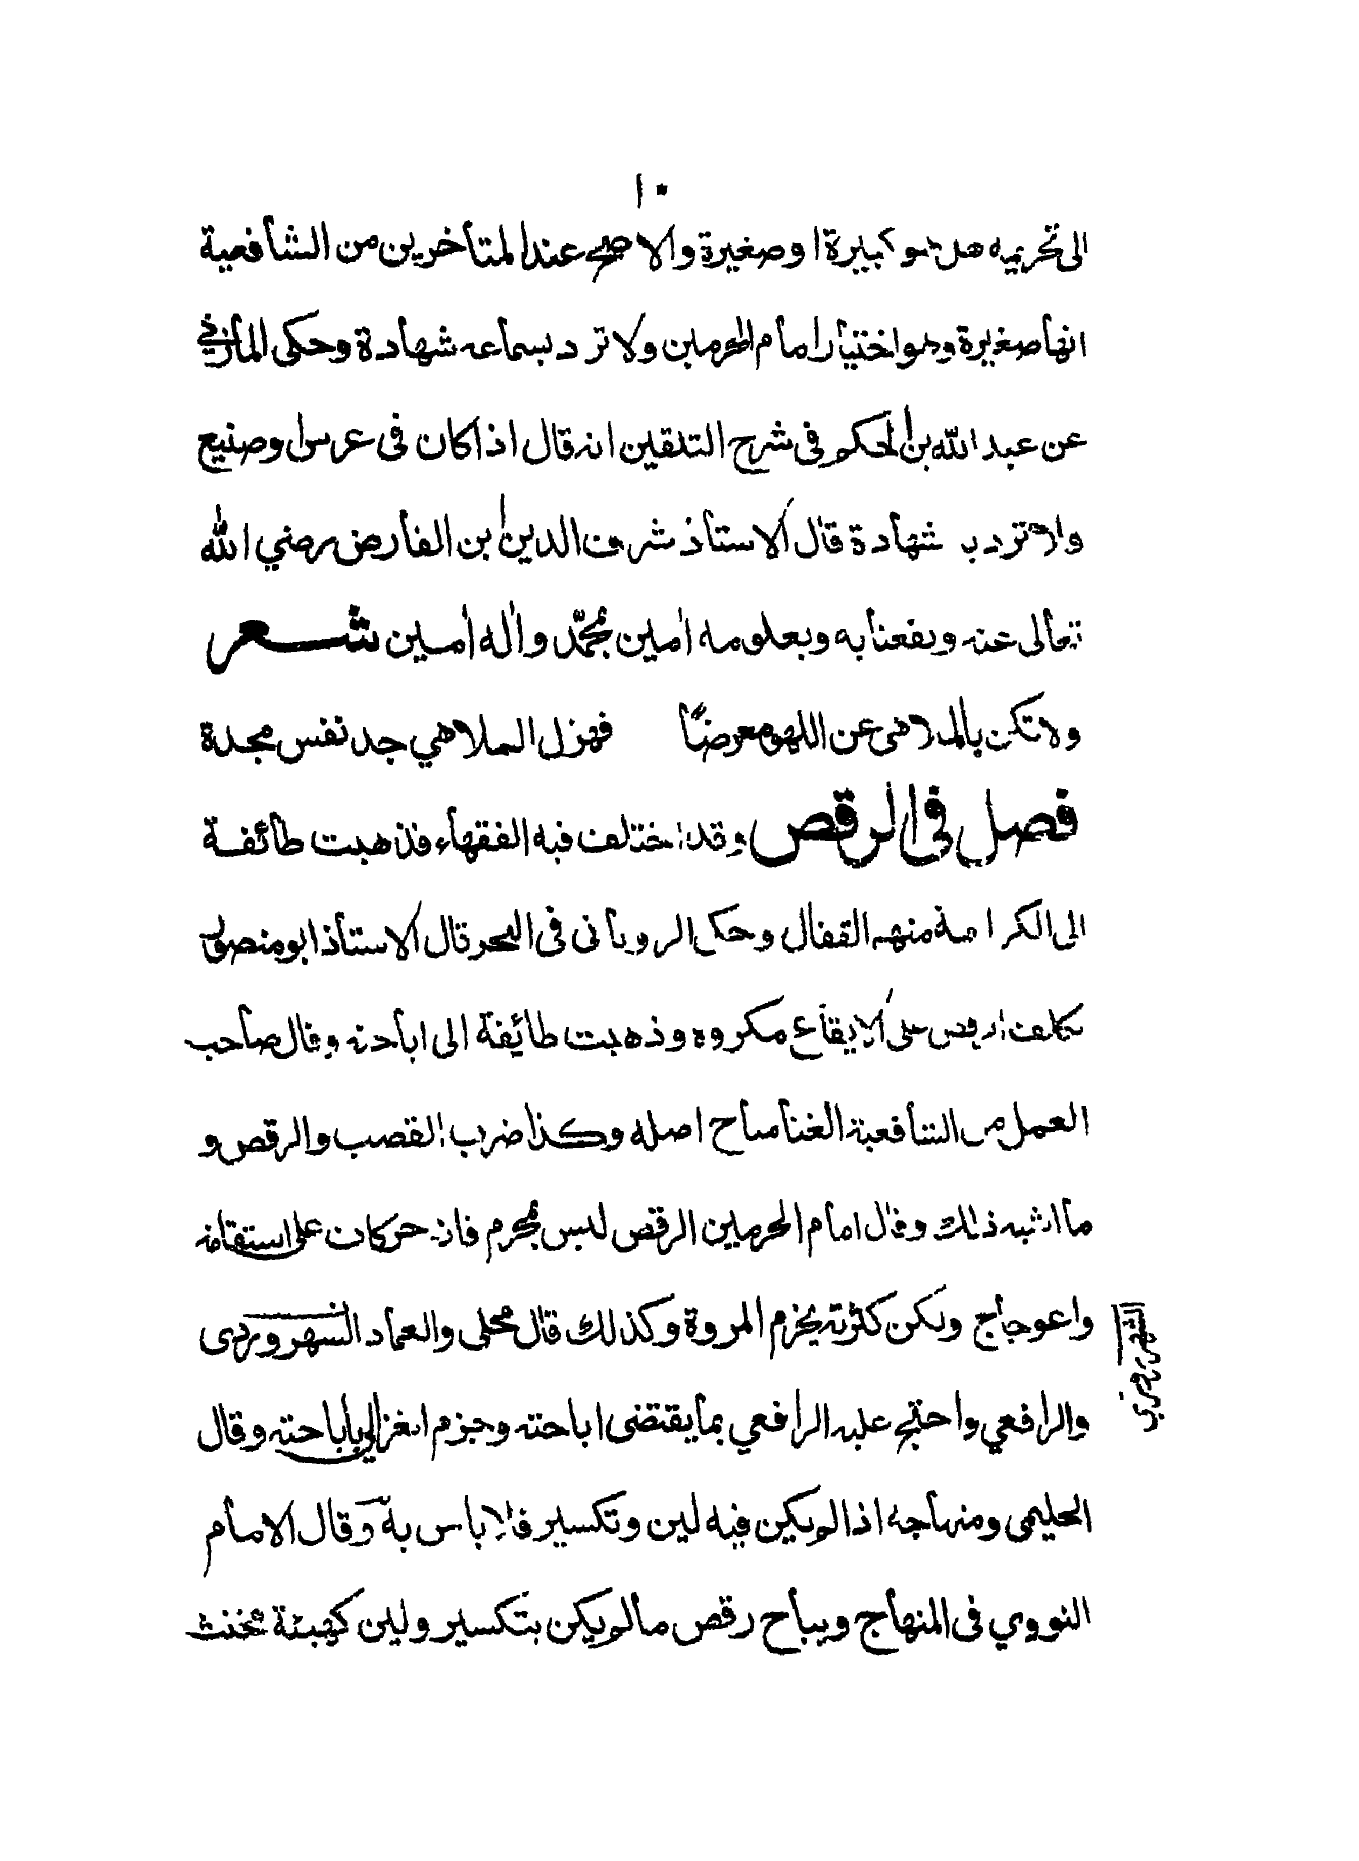 ١٠
الى تحريمه هل هو كبيرة او صغيرة والاصح عند المتأخرين من الشافعية
انها صغيرة وهو اختيار امام الحرمين ولا ترد بسماعه شهادة وحكى المأزرى
عن عبد الله بن الحكم فى شرح التلقين انه قال اذا كان فى عرس او صنيع
ولا ترد به شهادة قال الاستاذ شرف الدين ابن الفارض رضي الله
تعالى عنه ونفعنا به وبعلومه امين بمحمّد واله امين شعر
ولا تكن بالملاهى عن اللهو معرضاً فهزل الملاهي جد نفس مجدة
فصل فى الرقص وقد اختلف فيه الفقهاء فذهبت طائفة
الى الكراهة منهم القفال وحكى الرويانى فى البحر قال الاستاذ ابو منصور
تكلف الرقص على الايقاع مكروه وذهبت طائفة الى اباحته وقال صاحب
العمل من الشافعية الغنا مباح اصله وكذا ضرب القصب والرقص و
ما اشبه ذلك وقال امام الحرمين الرقص ليس بمحرم فانه حركات على استقامة
واعوجاج ولكن كثرته يخرم المروة وكذلك قال محلى والعماد السهروردى
السهروردى
والرافعي واحتج عليه الرافعي بما يقتضى اباحته وجزم الغزالي باباحته وقال
الحليمى ومنهاجه اذا لم يكن فيه لين وتكسير فلا باس به وقال الامام
النووي فى المنهاج ويباح رقص ما لم يكن بتكسير ولين كهيئة مخنث